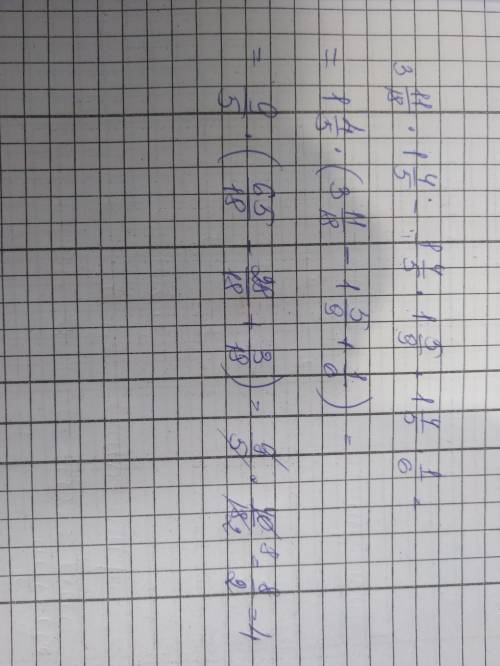 3 11/18 · 1 4/5 - 1 4/5 · 1 5/9 + 1 4/5 · 1/6 =
= 1 4/5 · (3 11/18 - 1 5/9 + 1/6) =
= 9/5 · (65/18 - 28/18 + 3/18) = 9/5 · 40/18 2 8 = 8/2 = 4